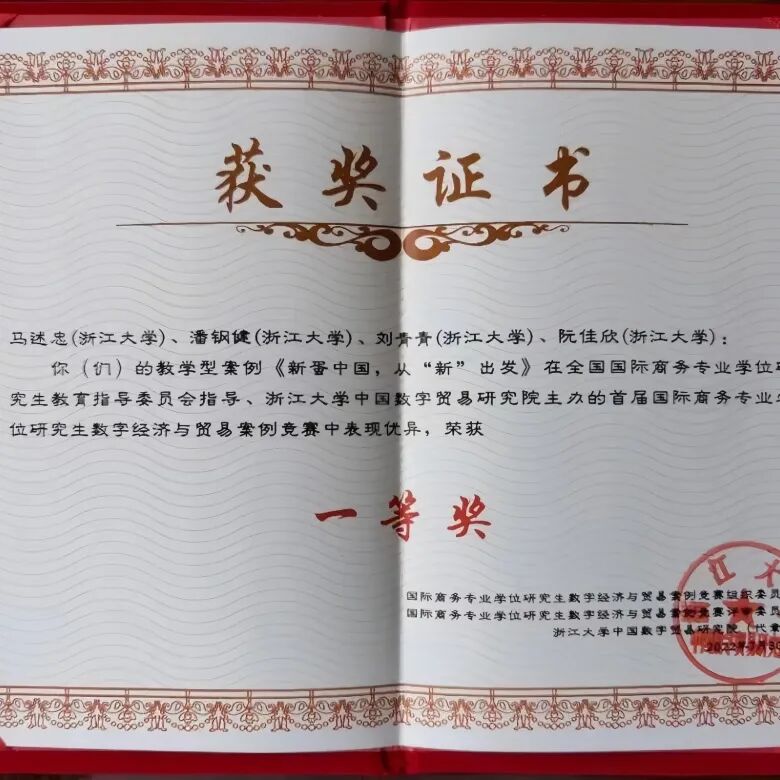 获奖证书
马述忠(浙江大学)、潘钢健(浙江大学)、刘青青(浙江大学)、阮佳欣(浙江大学)：
你（们）的教学型案例《新蛋中国，从“新”出发》在全国国际商务专业学位研
究生教育指导委员会指导、浙江大学中国数字贸易研究院主办的首届国际商务专业学
位研究生数字经济与贸易案例竞赛中表现优异，荣获
一等奖
国际商务专业学位研究生数字经济与贸易案例竞赛组织委员
国际商务专业学位研究生数字经济与贸易案例竞赛评审委员
浙江大学中国数字贸易研究院（代章
2022年7月30
江大